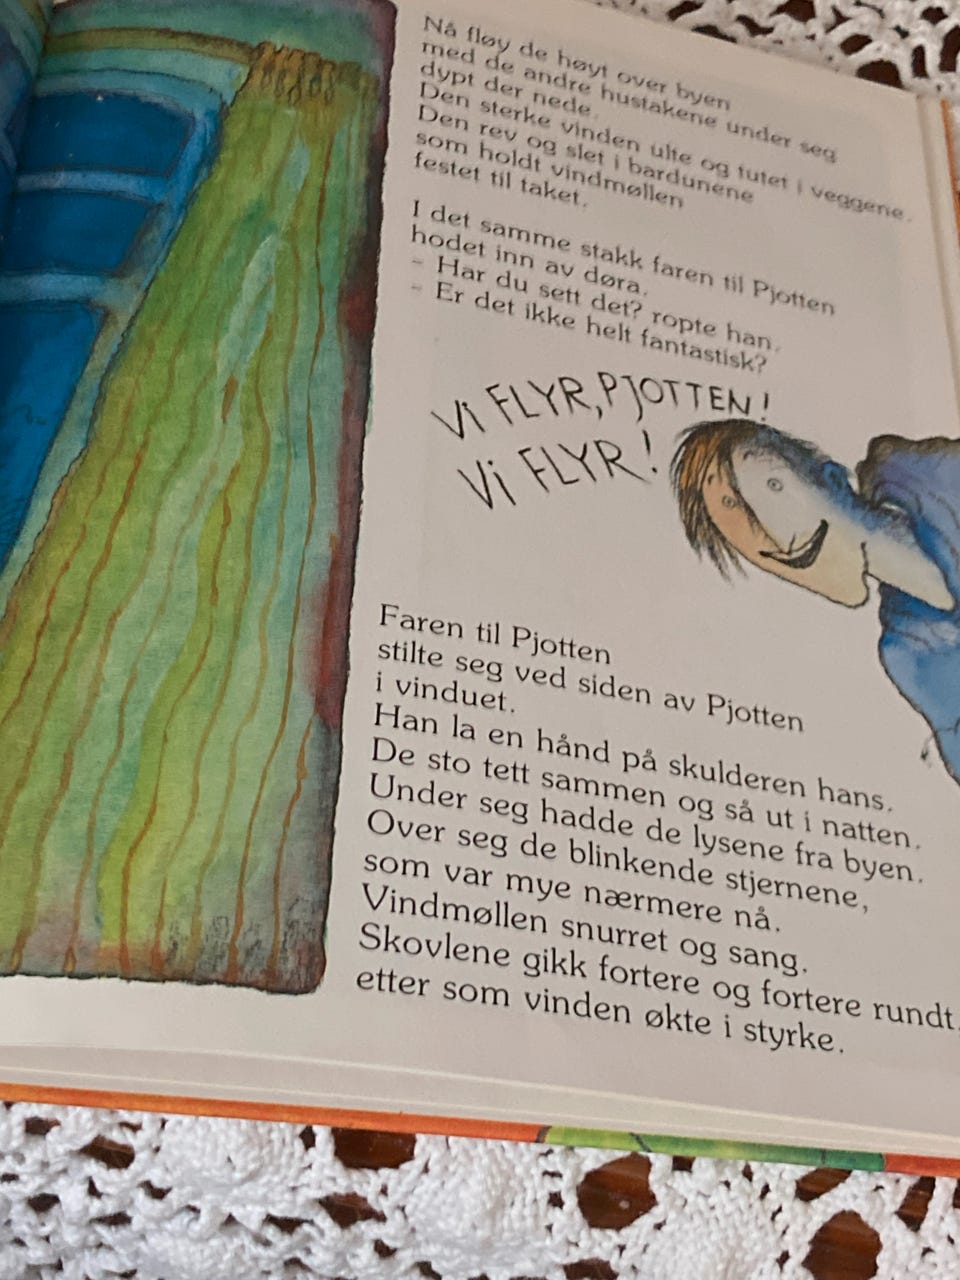 Nå fløy de høyt over byen
med de andre hustakene under seg
dypt der nede.
Den sterke vinden ulte og tutet i veggene.
Den rev og slet i bardunene
som holdt vindmøllen
festet til taket.
I det samme stakk faren til Pjotten
hodet inn av døra.
- Har du sett det? ropte han.
- Er det ikke helt fantastisk?
Vi FLYR, PJOTTEN!
Vi FLYR!
Faren til Pjotten
stilte seg ved siden av Pjotten
i vinduet.
Han la en hånd på skulderen hans.
De sto tett sammen og så ut i natten.
Under seg hadde de lysene fra byen.
Over seg de blinkende stjernene,
som var mye nærmere nå.
Vindmøllen snurret og sang.
Skovlene gikk fortere og fortere rundt,
etter som vinden økte i styrke.